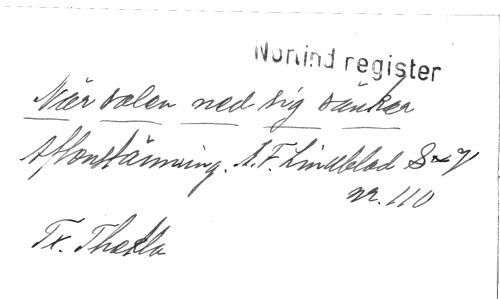 Norlind register
När solen ned sig sänker
Aftonstämning. A.F. Lindblad S & V
nr. 110
Tx. Thekla